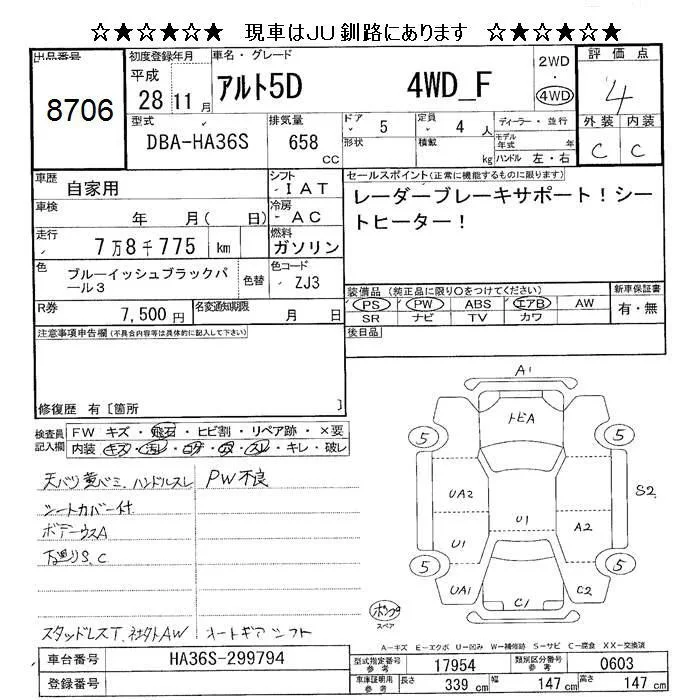 ☆★☆★☆★ 現車はJU釧路にあります ☆★☆★☆★
出品番号
8706
初度登録年月
平成
28 11月
車名・グレード
アルト5D 4WD_F
2WD
・
4WD
評価点
4
外装 内装
C C
型式
DBA-HA36S
排気量
658
CC
ドア
5
形状
定員
4 人
積載
kg
ディーラー・並行
モデル年式 年
ハンドル 左・右
車歴
自家用
シフト
IAT
車検
年 月( 日)
冷房
AC
走行
7万8千775 km
燃料
ガソリン
色
ブルーイッシュブラックパール3
色替
色コード
ZJ3
R券
7,500円
名変通知期限
月 日
セールスポイント(正常に機能するものに限ります)
レーダーブレーキサポート!シー
トヒーター!
装備品 (純正品に限り○をつけてください)
PS PW ABS エアB AW
SR ナビ TV カワ
新車保証書
有・無
後日品
注意事項申告欄(不具合内容等は具体的に記入して下さい)
修復歴 有〔箇所 〕
検査員
記入欄
FW キズ・飛石・ヒビ割・リペア跡・×要
内装・キズ・汚レ・コゲ・穴・スレ・キレ・破レ
天バリ ハンドルスレ
PW不良
シートカバー付
ボデーウスA
下廻りS、C
スタッドレスT、社外AW
オートギアシフト
A1
トビA
5
5
UA2
U1
U1
A2
S2
5
5
UA1
C1
C2
スペア
A-キズ E-エクボ U-凹み W-補修跡 S-サビ C-腐食 XX-交換済
車台番号
HA36S-299794
登録番号
型式指定番号
参考
17954
類別区分番号
参考
0603
車庫証明用
参考
長さ
339 cm
幅
147 cm
高さ
147 cm